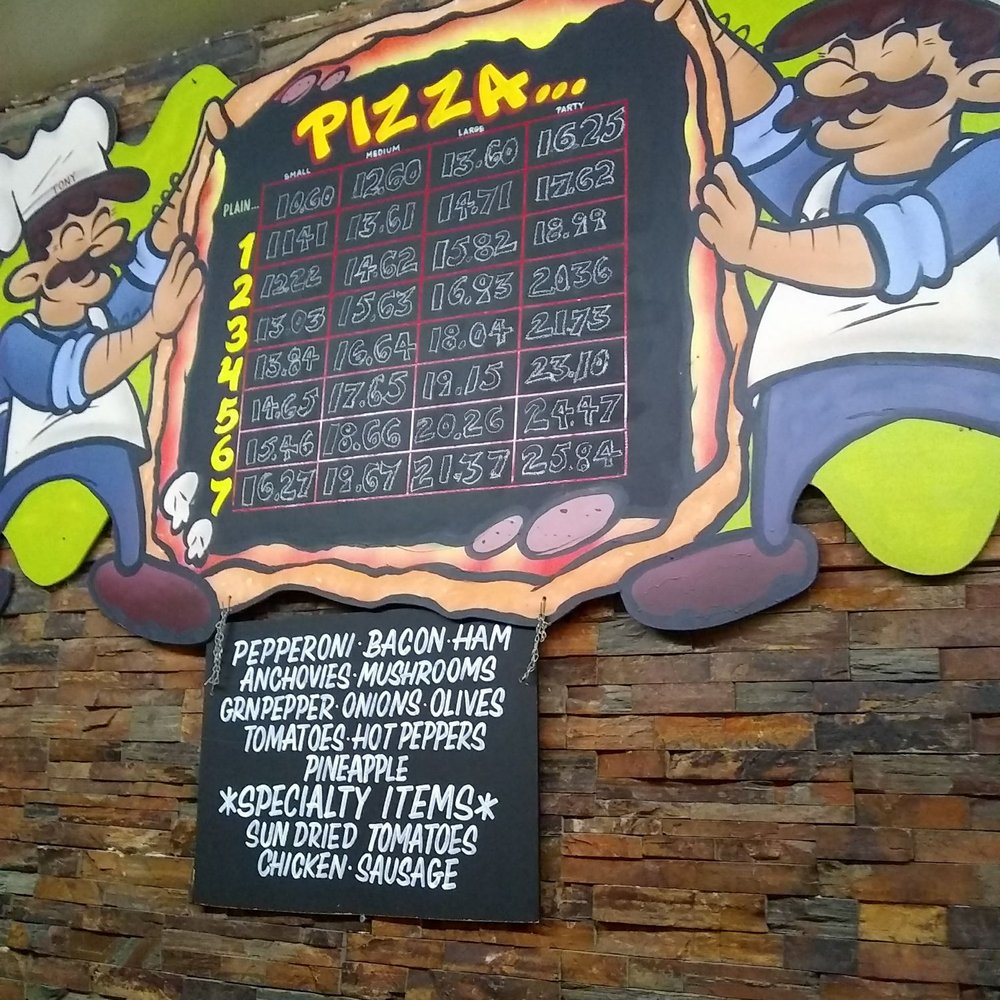 PIZZA...
SMALL MEDIUM LARGE PARTY
PLAIN... 10.60 12.60 13.60 16.25
1 1141 13.61 14.71 17.62
2 12.22 14.62 15.82 18.99
3 13.03 15.63 16.93 20.36
4 13.84 16.64 18.04 21.73
5 14.65 17.65 19.15 23.10
6 15.46 18.66 20.26 24.47
7 16.27 19.67 21.37 25.84
TONY
PEPPERONI · BACON · HAM
ANCHOVIES · MUSHROOMS
GRN PEPPER · ONIONS · OLIVES
TOMATOES · HOT PEPPERS
PINEAPPLE
*SPECIALTY ITEMS*
SUN DRIED TOMATOES
CHICKEN · SAUSAGE